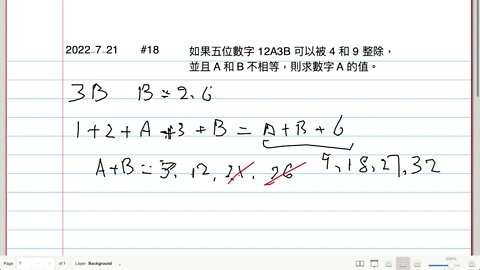 2022-7-21 #18 如果五位數字 12A3B 可以被 4 和 9 整除，
並且 A 和 B 不相等，則求數字 A 的值。
3B B=2.6
1+2+A+3+B=A+B+6
A+B=3, 12, 21, 26 9,18,27,32
Page 1 of 1 Layer Background 234%